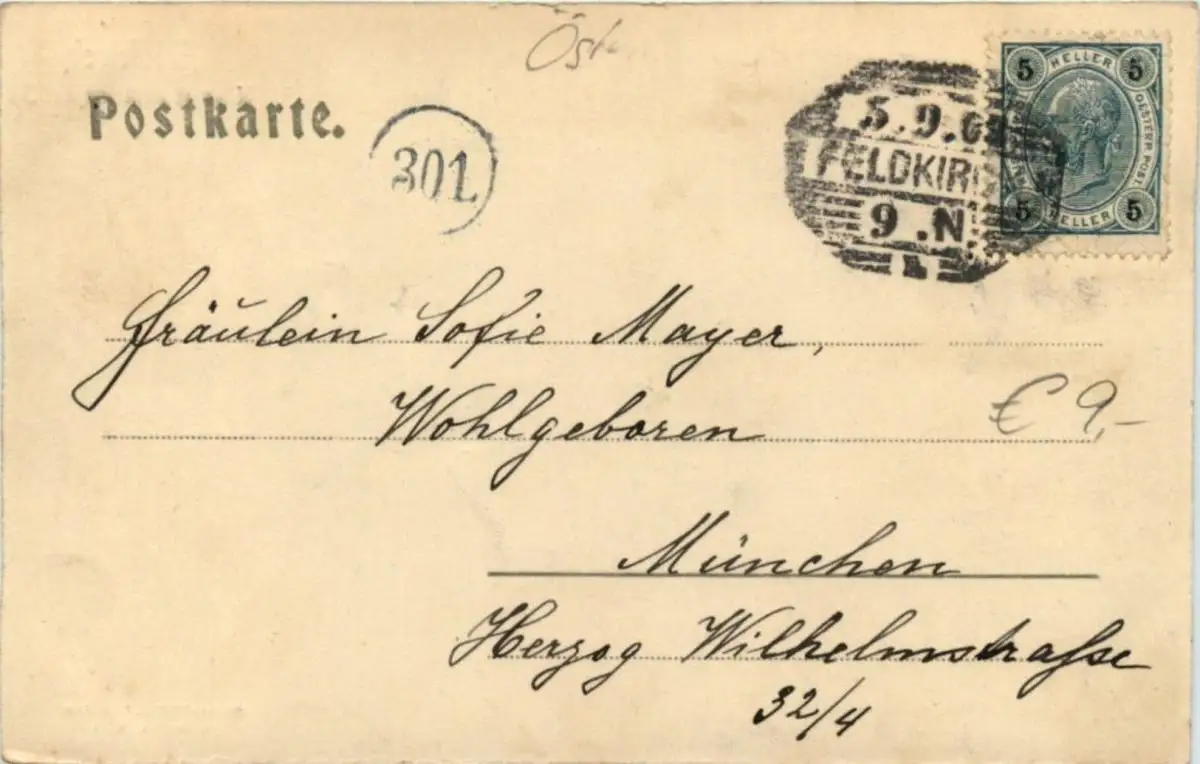 Öst
Postkarte.
301.
5.9.0
FELDKIR
9.N.
5 HELLER 5
OESTERR. POST.
5 HELLER 5
Fräulein Sofie Mayer,
Wohlgeboren
€ 9,-
München
Herzog Wilhelmstraſse
32/4